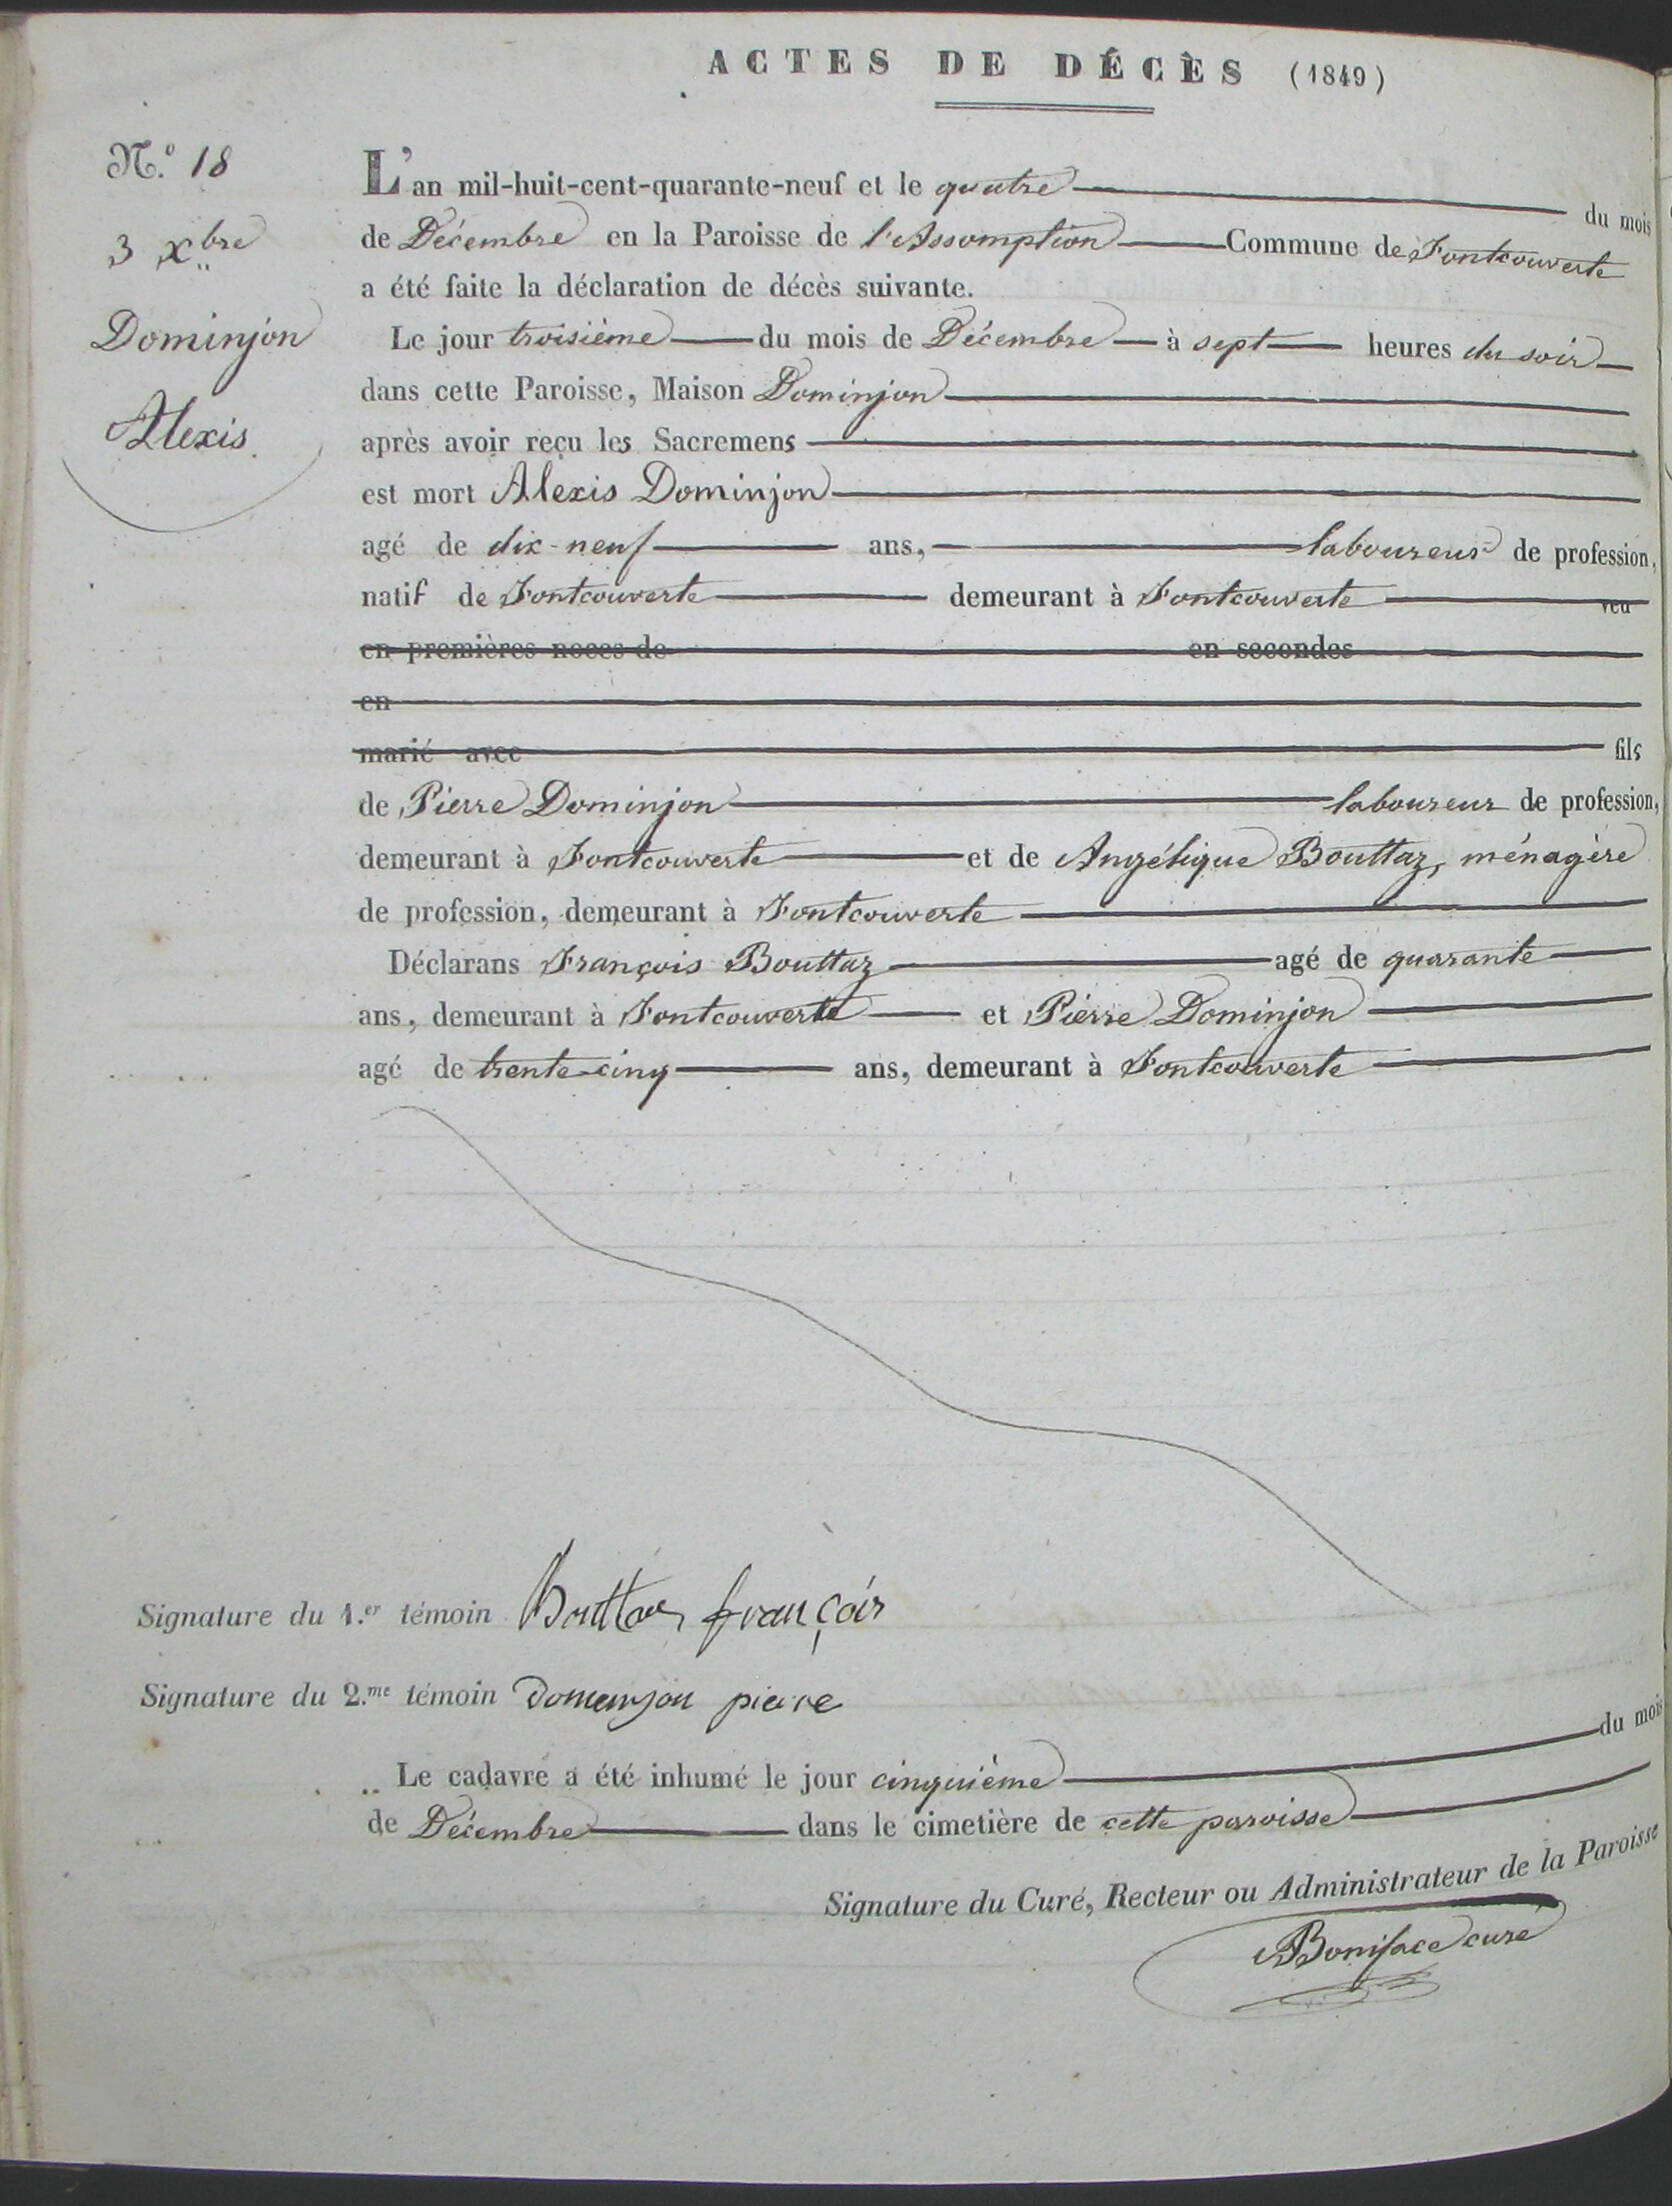 ACTES DE DÉCÈS (1849)
N.º 18
3 Xbre
Dominjon
Alexis
L'an mil-huit-cent-quarante-neuf et le quatre du mois
de Décembre en la Paroisse de l'Assomption Commune de Fontcouverte
a été faite la déclaration de décès suivante.
Le jour troisième du mois de Décembre à sept heures du soir
dans cette Paroisse, Maison Dominjon
après avoir reçu les Sacremens
est mort Alexis Dominjon
agé de dix-neuf ans, laboureur de profession,
natif de Fontcouverte demeurant à Fontcouverte veu
en premières noces de en secondes
en
marié avec fils
de Pierre Dominjon laboureur de profession,
demeurant à Fontcouverte et de Angélique Bouttaz, ménagère
de profession, demeurant à Fontcouverte
Déclarans François Bouttaz agé de quarante
ans, demeurant à Fontcouverte et Pierre Dominjon
agé de trente-cinq ans, demeurant à Fontcouverte
Signature du 1.er témoin Bouttaz françois
Signature du 2.me témoin domenjon pierre
Le cadavre a été inhumé le jour cinquième du mois
de Décembre dans le cimetière de cette paroisse
Signature du Curé, Recteur ou Administrateur de la Paroisse
Boniface curé